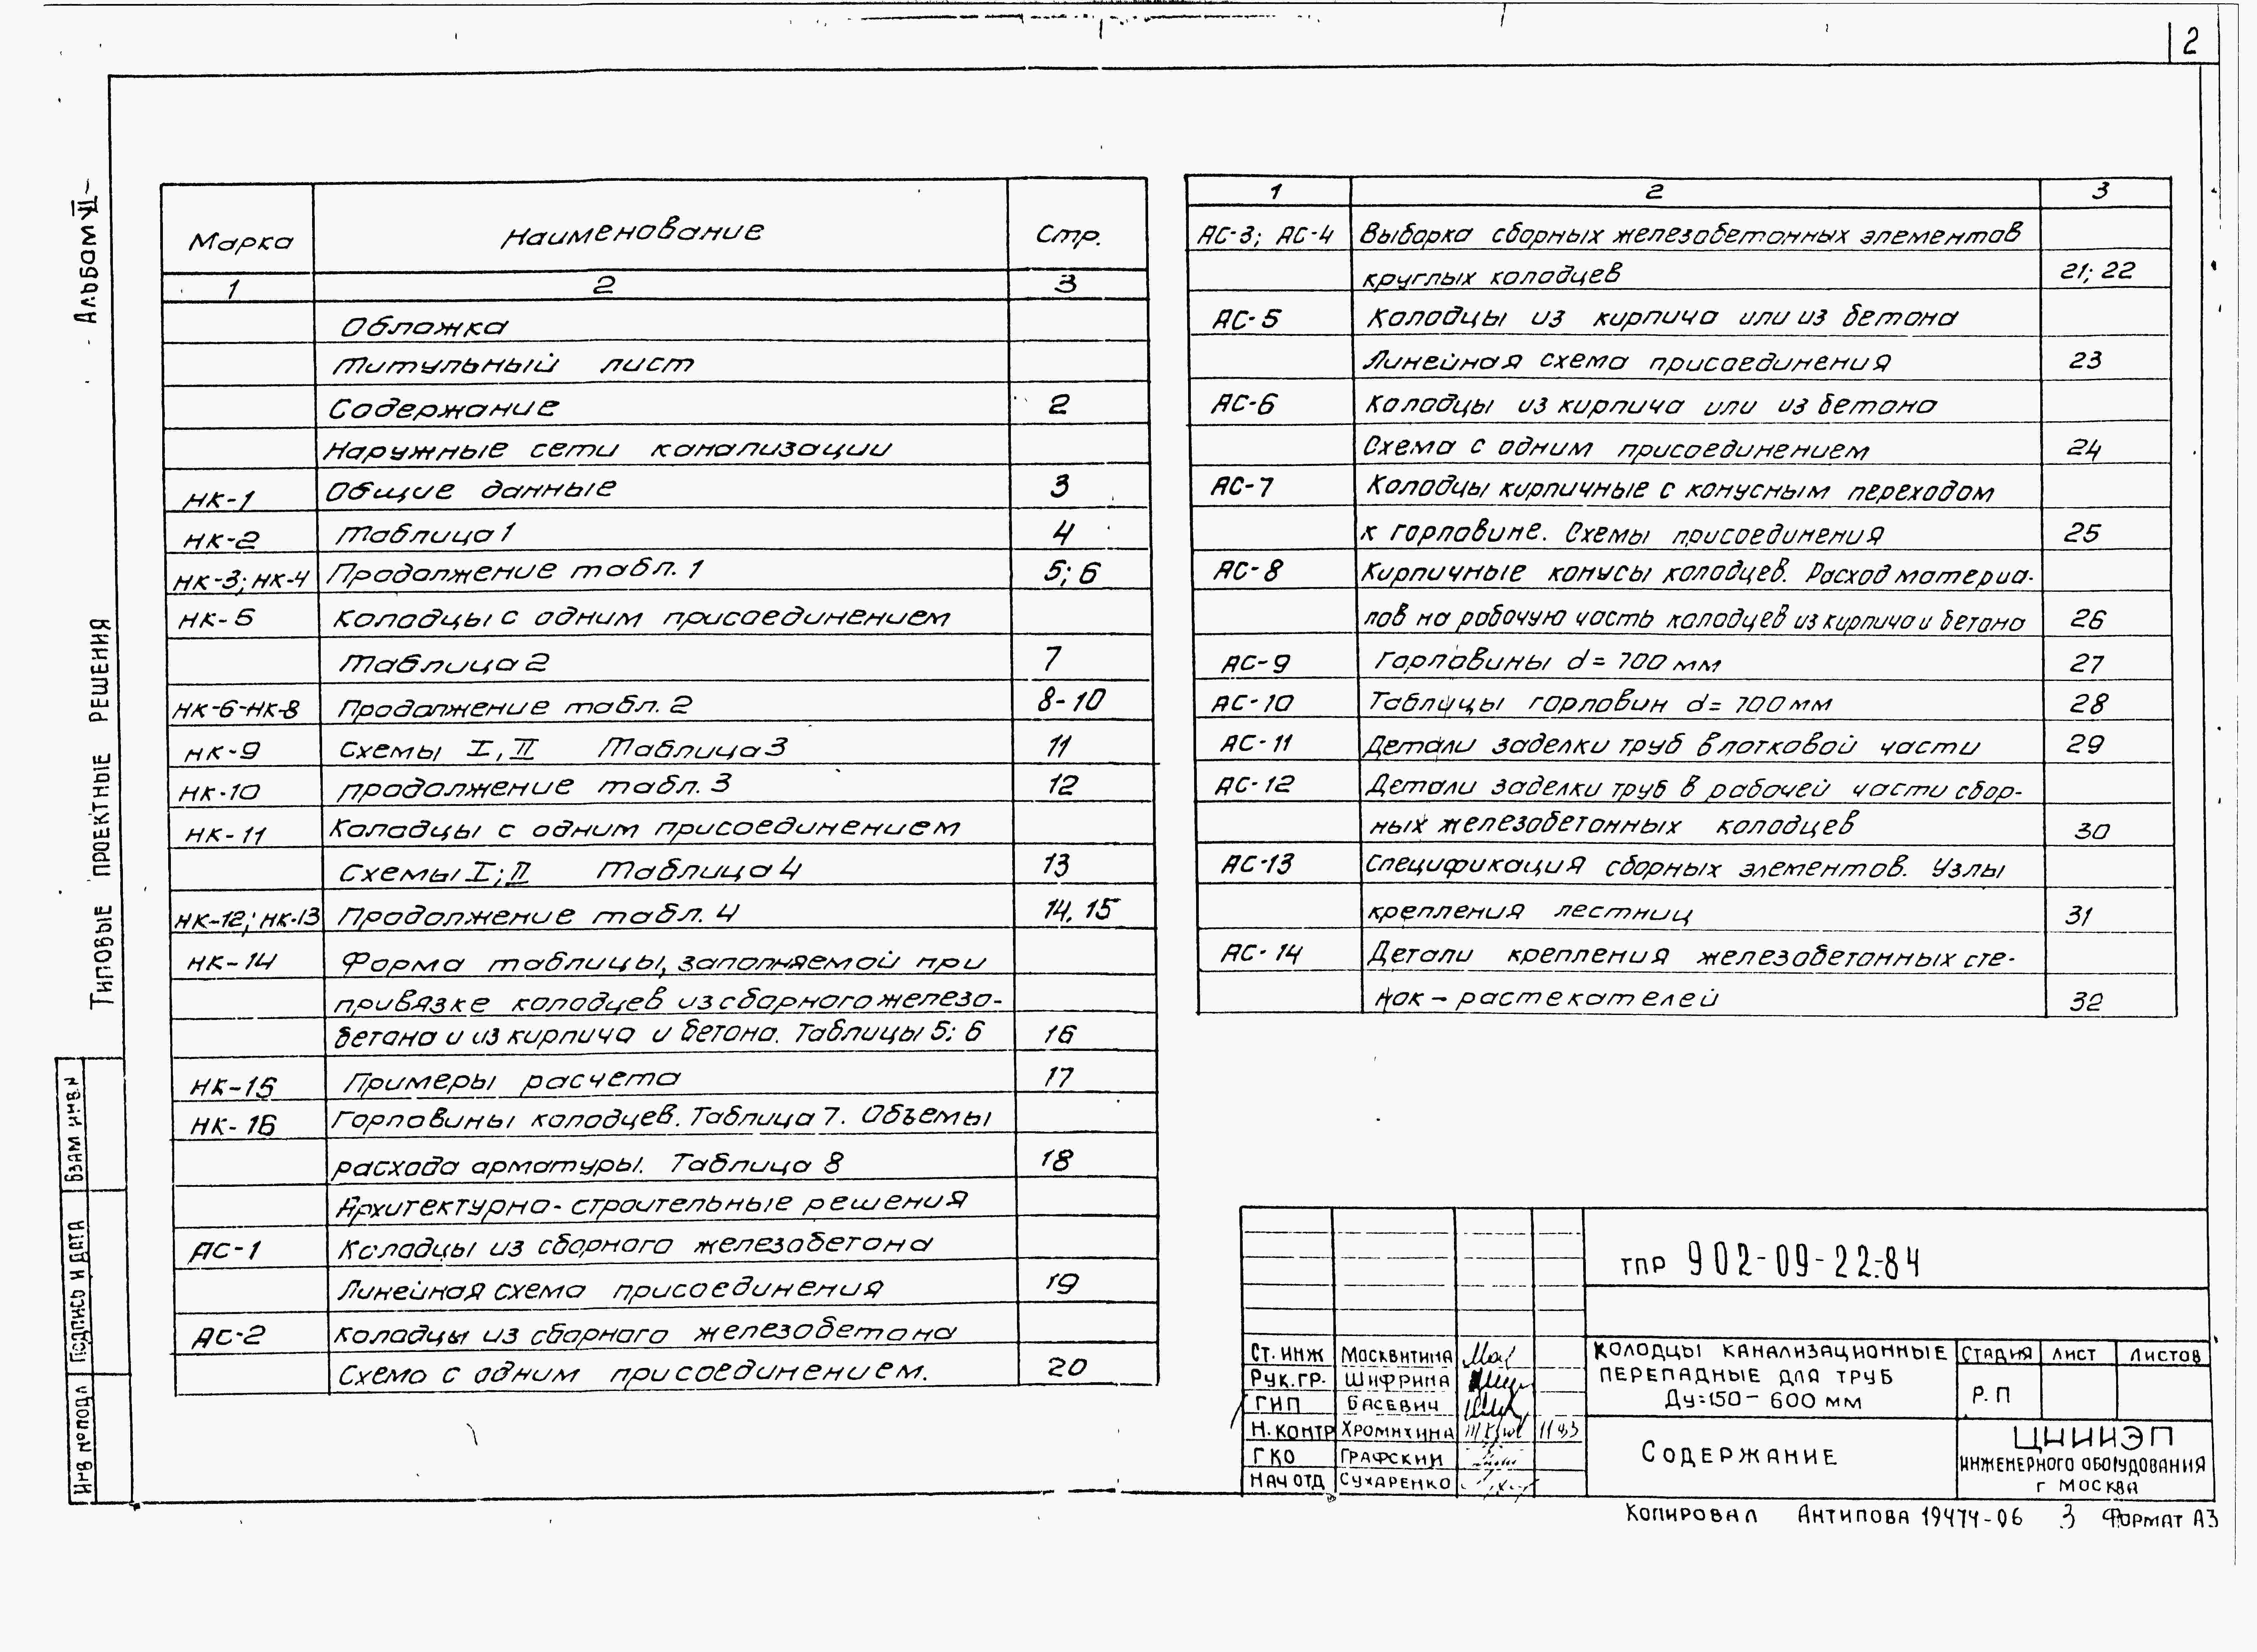 2
Альбом VII
Типовые проектные решения
Марка Наименование Стр.
1 2 3
Обложка
Титульный лист
Содержание 2
Наружные сети канализации
НК-1 Общие данные 3
НК-2 Таблица 1 4
НК-3; НК-4 Продолжение табл. 1 5; 6
НК-5 Колодцы с одним присоединением
Таблица 2 7
НК-6-НК-8 Продолжение табл. 2 8-10
НК-9 Схемы I, II Таблица 3 11
НК-10 продолжение табл. 3 12
НК-11 Колодцы с одним присоединением
Схемы I; II Таблица 4 13
НК-12; НК-13 Продолжение табл. 4 14, 15
НК-14 Форма таблицы, заполняемой при
привязке колодцев из сборного железо-
бетона и из кирпича и бетона. Таблицы 5; 6 16
НК-15 Примеры расчета 17
НК-16 Горловины колодцев. Таблица 7. Объемы
расхода арматуры. Таблица 8 18
Архитектурно-строительные решения
АС-1 Колодцы из сборного железобетона
Линейная схема присоединения 19
АС-2 Колодцы из сборного железобетона
Схема с одним присоединением. 20
1 2 3
АС-3; АС-4 Выборка сборных железобетонных элементов
круглых колодцев 21; 22
АС-5 Колодцы из кирпича или из бетона
Линейная схема присоединения 23
АС-6 Колодцы из кирпича или из бетона
Схема с одним присоединением 24
АС-7 Колодцы кирпичные с конусным переходом
к горловине. Схемы присоединения 25
АС-8 Кирпичные конусы колодцев. Расход материа-
лов на рабочую часть колодцев из кирпича и бетона 26
АС-9 Горловины d = 700 мм 27
АС-10 Таблицы горловин d = 700 мм 28
АС-11 Детали заделки труб в лотковой части 29
АС-12 Детали заделки труб в рабочей части сбор-
ных железобетонных колодцев 30
АС-13 Спецификация сборных элементов. Узлы
крепления лестниц 31
АС-14 Детали крепления железобетонных сте-
нок - растекателей 32
Взам инв.н
Подпись и дата
Инв № подл
ТПР 902-09-22.84
Ст. инж Москвитина
Рук. гр. Шифрина
ГИП Басевич
Н. контр Хромихина 11 83
ГКО Графский
Нач отд Сухаренко
Колодцы канализационные
перепадные для труб
Ду=150-600 мм
Стадия Лист Листов
Р.П
Содержание
ЦНИИЭП
инженерного оборудования
г Москва
Копировал Антипова 19474-06 3 Формат А3